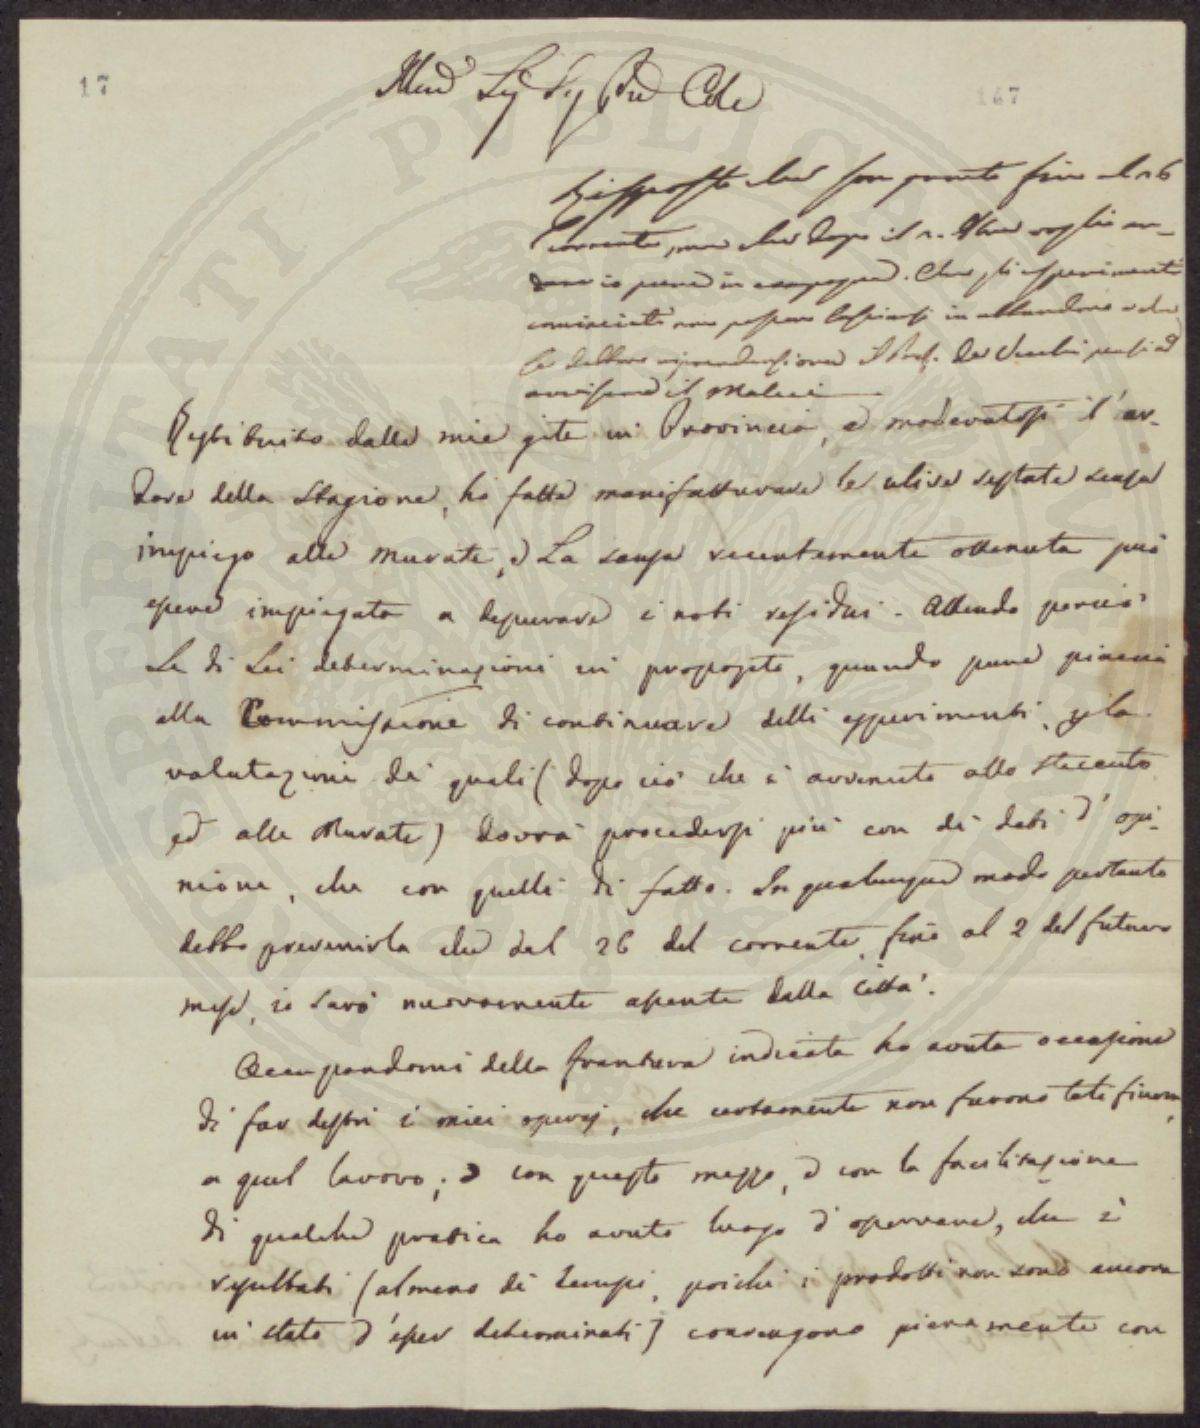 17
147
Illmo Sig. Sig. Pne Cole
Risposto che son pronto fino al 26
corrente, ma che dopo il 2. voglio an-
dare io pure in campagna. Che gli esperimenti
cominciati non possono lasciarsi in abbandono e che
il Prof. Del pensi ad
avvisare il Matteucci
Restituito dalle mie gite in Provincia, e moderatosi l'ar-
dore della stagione, ho fatto manifatturare le ulive restate senza
impiego alle Murate, e La sansa recentemente ottenuta può
essere impiegata a depurare i noti residui. Attendo perciò
Le di Lei determinazioni in proposito, quando pure piaccia
alla Commissione di continuare delli esperimenti, nella
valutazione dei quali (dopo ciò che è avvenuto allo steccato
ed alle Murate) dovrà procedersi più con dei dati d'opi-
nione, che con quelli di fatto. In qualunque modo pertanto
debbo prevenirla che dal 26 del corrente, fino al 2 del futuro
mese, io sarò nuovamente assente dalla Città.
Occupandomi della frantura indicata ho avuta occasione
di far destri i miei operaj, che certamente non furono tali finora,
a quel lavoro; e con questo mezzo, e con la facilitazione
di qualche pratica ho avuto luogo d'osservare, che i
resultati (almeno di tempi, poichè i prodotti non sono ancora
in stato d'esser determinati) convengono pienamente con